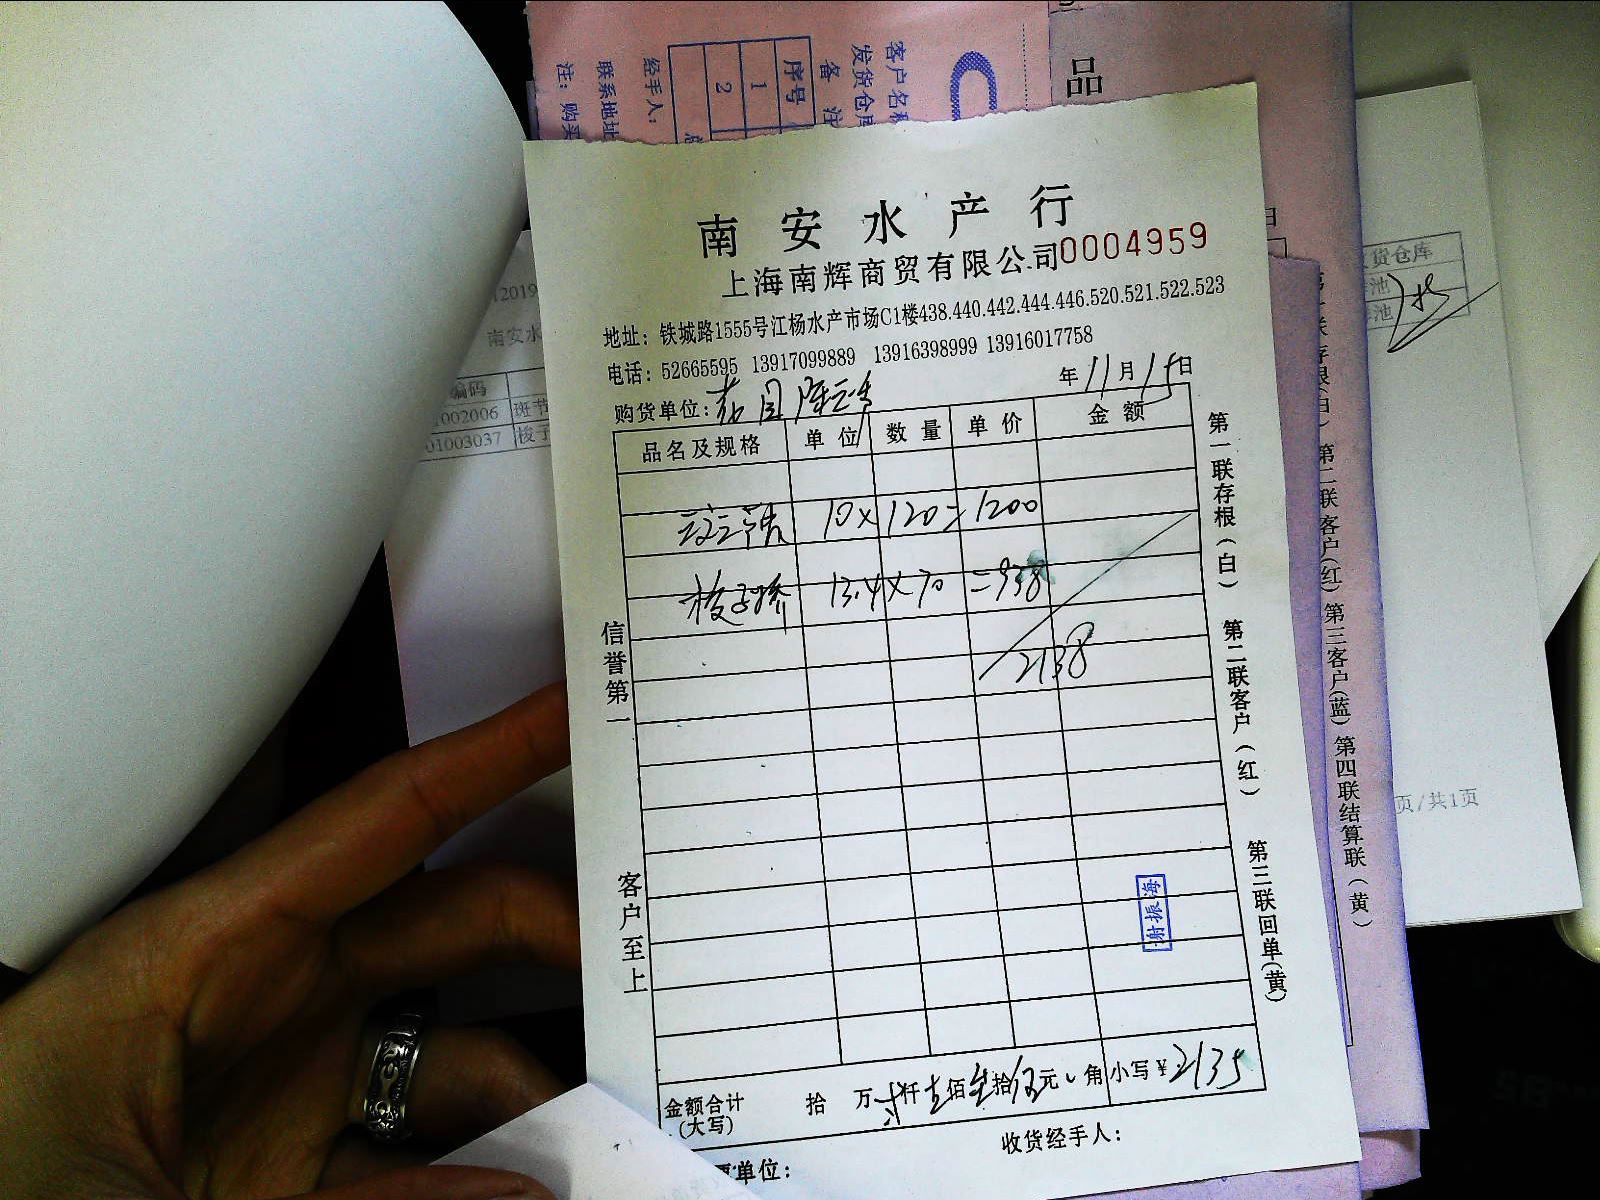 客户名称
发货仓库
备 注
序号
1
2
经手人:
联系地址
注: 购买
品
南安水产行
上海南辉商贸有限公司 0004959
地址: 铁城路1555号江杨水产市场C1楼438.440.442.444.446.520.521.522.523
电话: 52665595 13917099889 13916398999 13916017758
购货单位:
年 11 月 15 日
品名及规格 单位 数量 单价 金额
10 × 120 = 1200
梭子蟹 13.4 × 70 = 938
2138
信誉第一
客户至上
第一联存根(白) 第二联客户(红) 第三联回单(黄)
谢振海
金额合计(大写) 拾 万 仟 壹 佰 拾 伍 元 角 小写¥ 2135
收货经手人:
单位:
12019
南安水
编码
002006 斑节
01003037 梭子
第二联客户(红) 第三客户(蓝) 第四联结算联(黄)
货仓库
池
池
页/共1页